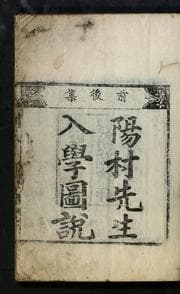 前後集
陽村先生
入學圖說